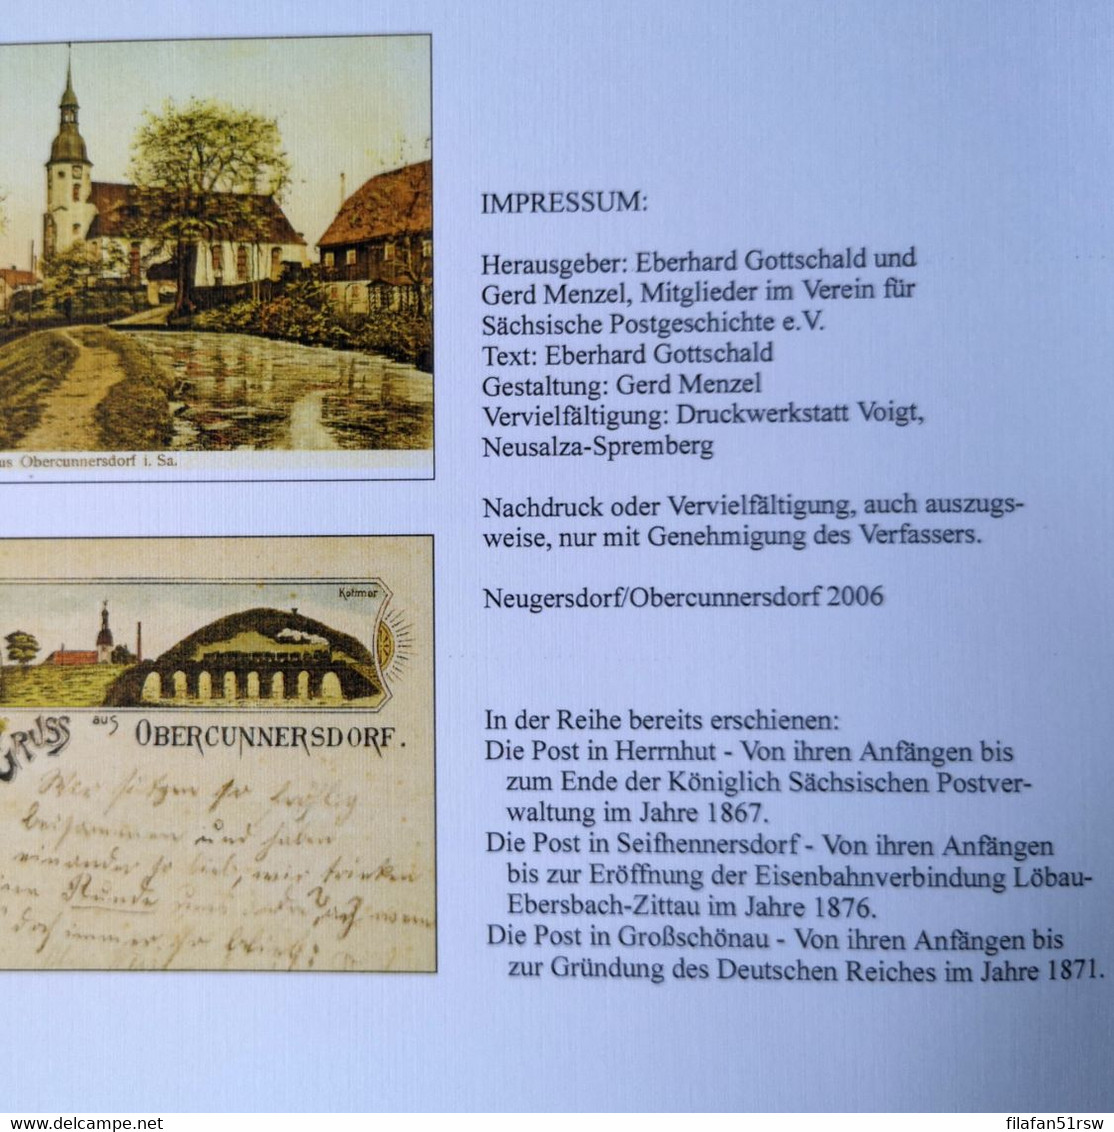 us Obercunnersdorf i. Sa.
Kottmar
GRUSS aus OBERCUNNERSDORF.
Wir sitzen so fröhlig
beisammen und haben
einander so lieb, wir trinken
Runde
IMPRESSUM:
Herausgeber: Eberhard Gottschald und
Gerd Menzel, Mitglieder im Verein für
Sächsische Postgeschichte e.V.
Text: Eberhard Gottschald
Gestaltung: Gerd Menzel
Vervielfältigung: Druckwerkstatt Voigt,
Neusalza-Spremberg
Nachdruck oder Vervielfältigung, auch auszugs-
weise, nur mit Genehmigung des Verfassers.
Neugersdorf/Obercunnersdorf 2006
In der Reihe bereits erschienen:
Die Post in Herrnhut - Von ihren Anfängen bis
zum Ende der Königlich Sächsischen Postver-
waltung im Jahre 1867.
Die Post in Seifhennersdorf - Von ihren Anfängen
bis zur Eröffnung der Eisenbahnverbindung Löbau-
Ebersbach-Zittau im Jahre 1876.
Die Post in Großschönau - Von ihren Anfängen bis
zur Gründung des Deutschen Reiches im Jahre 1871.
delcampe.net
filafan51rsw